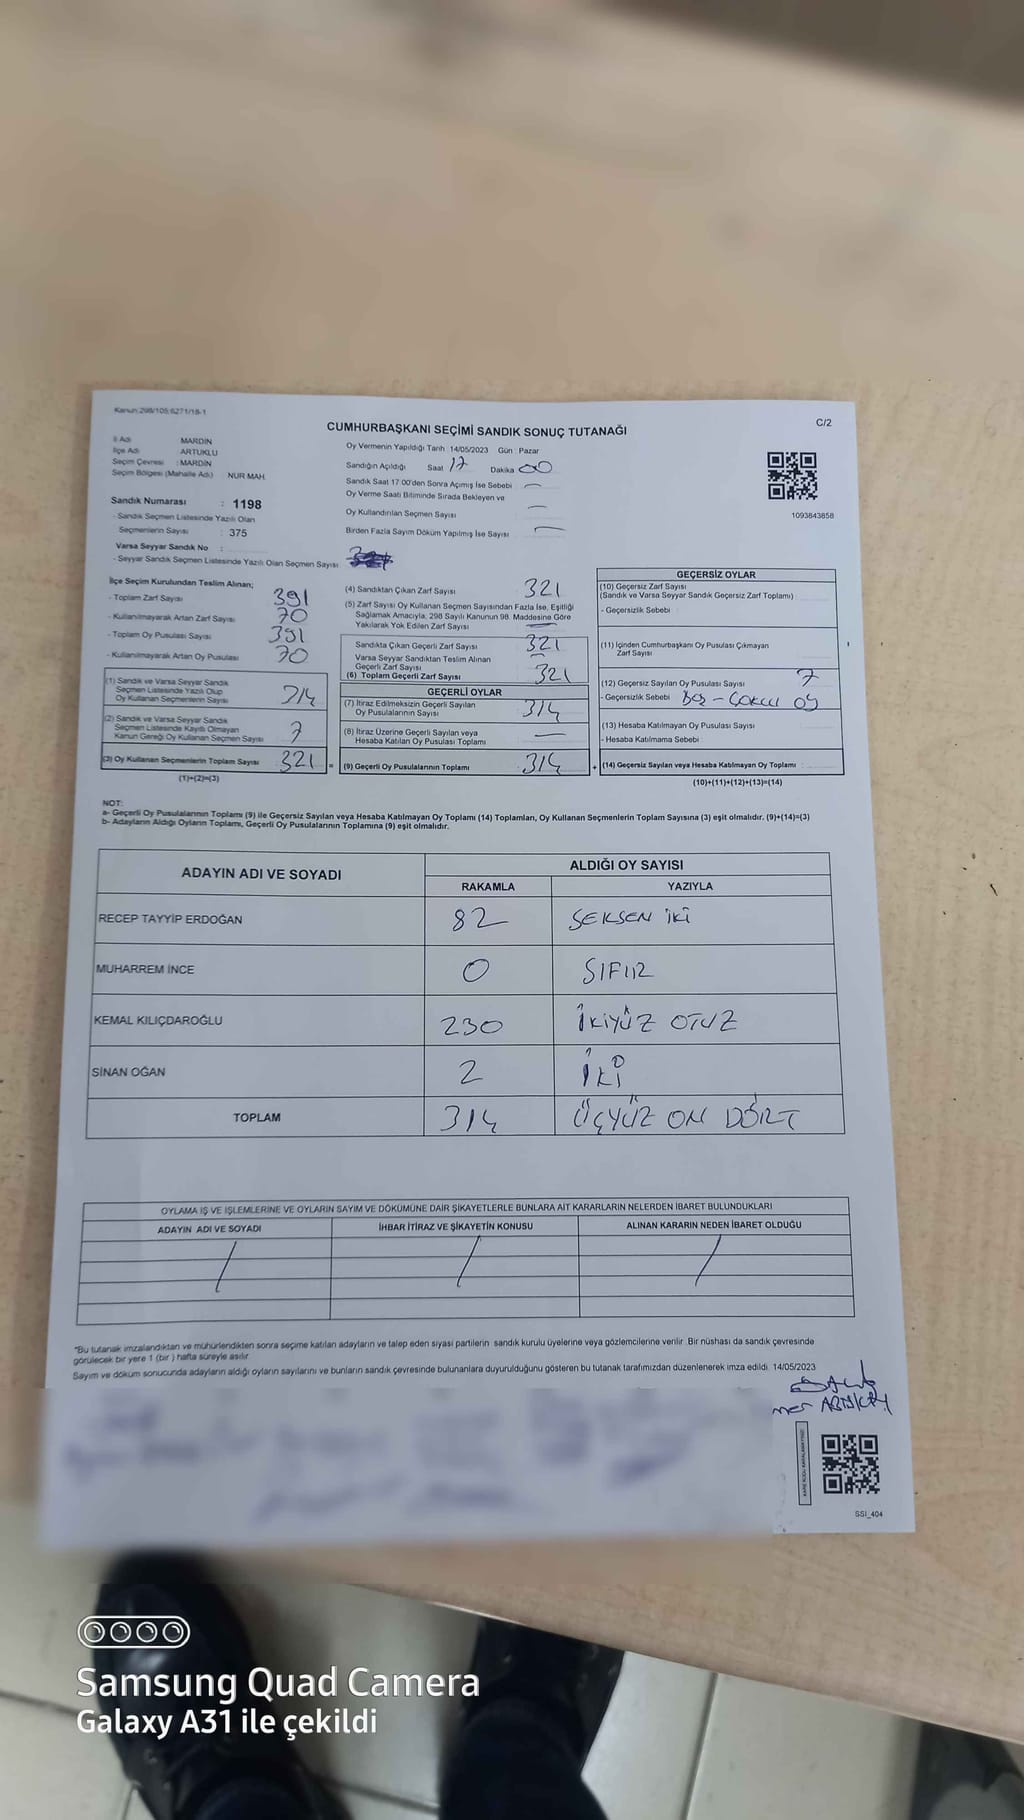 Kanun:298/105;6271/18-1
C/2
CUMHURBAŞKANI SEÇİMİ SANDIK SONUÇ TUTANAĞI
İl Adı MARDİN
İlçe Adı ARTUKLU
Seçim Çevresi : MARDİN
Seçim Bölgesi (Mahalle Adı) NUR MAH.
Sandık Numarası : 1198
- Sandık Seçmen Listesinde Yazılı Olan
Seçmenlerin Sayısı : 375
Varsa Seyyar Sandık No :
- Seyyar Sandık Seçmen Listesinde Yazılı Olan Seçmen Sayısı
Oy Vermenin Yapıldığı Tarih :14/05/2023 Gün : Pazar
Sandığın Açıldığı Saat 17 Dakika 00
Sandık Saat 17:00'den Sonra Açımış İse Sebebi
Oy Verme Saati Bitiminde Sırada Bekleyen ve
Oy Kullandırılan Seçmen Sayısı
Birden Fazla Sayım Döküm Yapılmış İse Sayısı
1093843858
İlçe Seçim Kurulundan Teslim Alınan;
- Toplam Zarf Sayısı 391
- Kullanılmayarak Artan Zarf Sayısı 70
- Toplam Oy Pusulası Sayısı 391
- Kullanılmayarak Artan Oy Pusulası 70
(1) Sandık ve Varsa Seyyar Sandık
Seçmen Listesinde Yazılı Olup
Oy Kullanan Seçmenlerin Sayısı 314
(2) Sandık ve Varsa Seyyar Sandık
Seçmen Listesinde Kayıtlı Olmayan
Kanun Gereği Oy Kullanan Seçmen Sayısı 7
(3) Oy Kullanan Seçmenlerin Toplam Sayısı 321
(1)+(2)=(3)
(4) Sandıktan Çıkan Zarf Sayısı 321
(5) Zarf Sayısı Oy Kullanan Seçmen Sayısından Fazla İse, Eşitliği
Sağlamak Amacıyla, 298 Sayılı Kanunun 98. Maddesine Göre
Yakılarak Yok Edilen Zarf Sayısı
Sandıkta Çıkan Geçerli Zarf Sayısı 321
Varsa Seyyar Sandıktan Teslim Alınan
Geçerli Zarf Sayısı
(6) Toplam Geçerli Zarf Sayısı 321
GEÇERLİ OYLAR
(7) İtiraz Edilmeksizin Geçerli Sayılan
Oy Pusulalarının Sayısı 314
(8) İtiraz Üzerine Geçerli Sayılan veya
Hesaba Katılan Oy Pusulası Toplamı
= (9) Geçerli Oy Pusulalarının Toplamı 314
GEÇERSİZ OYLAR
(10) Geçersiz Zarf Sayısı
(Sandık ve Varsa Seyyar Sandık Geçersiz Zarf Toplamı) :
- Geçersizlik Sebebi
(11) İçinden Cumhurbaşkanı Oy Pusulası Çıkmayan
Zarf Sayısı
(12) Geçersiz Sayılan Oy Pusulası Sayısı 7
- Geçersizlik Sebebi BOŞ - ÇOKLU OY
(13) Hesaba Katılmayan Oy Pusulası Sayısı
- Hesaba Katılmama Sebebi
+ (14) Geçersiz Sayılan veya Hesaba Katılmayan Oy Toplamı :
(10)+(11)+(12)+(13)=(14)
NOT:
a- Geçerli Oy Pusulalarının Toplamı (9) ile Geçersiz Sayılan veya Hesaba Katılmayan Oy Toplamı (14) Toplamları, Oy Kullanan Seçmenlerin Toplam Sayısına (3) eşit olmalıdır. (9)+(14)=(3)
b- Adayların Aldığı Oyların Toplamı, Geçerli Oy Pusulalarının Toplamına (9) eşit olmalıdır.
ADAYIN ADI VE SOYADI ALDIĞI OY SAYISI
RAKAMLA YAZIYLA
RECEP TAYYİP ERDOĞAN 82 SEKSEN İKİ
MUHARREM İNCE 0 SIFIR
KEMAL KILIÇDAROĞLU 230 İKİYÜZ OTUZ
SİNAN OĞAN 2 İKİ
TOPLAM 314 ÜÇYÜZ ON DÖRT
OYLAMA İŞ VE İŞLEMLERİNE VE OYLARIN SAYIM VE DÖKÜMÜNE DAİR ŞİKAYETLERLE BUNLARA AİT KARARLARIN NELERDEN İBARET BULUNDUKLARI
ADAYIN ADI VE SOYADI İHBAR İTİRAZ VE ŞİKAYETİN KONUSU ALINAN KARARIN NEDEN İBARET OLDUĞU
*Bu tutanak imzalandıktan ve mühürlendikten sonra seçime katılan adayların ve talep eden siyasi partilerin sandık kurulu üyelerine veya gözlemcilerine verilir .Bir nüshası da sandık çevresinde
görülecek bir yere 1 (bir ) hafta süreyle asılır.
Sayım ve döküm sonucunda adayların aldığı oyların sayılarını ve bunların sandık çevresinde bulunanlara duyurulduğunu gösteren bu tutanak tarafımızdan düzenlenerek imza edildi. 14/05/2023
KARE KODU KARALAMAYINIZ!
SSI_404
Samsung Quad Camera
Galaxy A31 ile çekildi